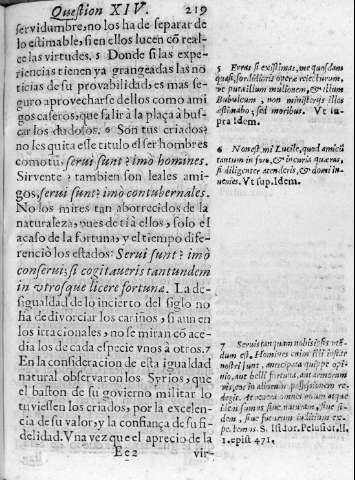 Question XIV. 219
servidumbre, no los ha de separar de
lo estimable, si en ellos lucen cō real-
ce las virtudes. 5 Donde si las expe-
riencias tienen ya grangeadas las no
ticias de su provabilidad, es mas se-
guro aprovecharse dellos como ami
gos caseros, que salir a la plaça à bus-
car los dudosos. 6 Son tus criados?
no les quita esse titulo el ser hombres
como tù: servi sunt? imò homines.
Sirvente? tambien son leales ami-
gos, servi sunt? imò contubernales.
No los mires tan aborrecidos de la
naturaleza, pues de ti à ellos, solo el
acaso de la fortuna, y el tiempo dife-
renciò los estados: Servi sunt? imò
conservi; si cogitaveris tantundem
in vtrosque licere fortunæ. La de-
sigualdad de lo incierto del siglo no
ha de divorciar los cariños, si aun en
los irracionales, no se miran cō ace-
dia los de cada especie vnos à otros. 7
En la consideracion de esta igualdad
natural observaron los Syrios, que
el baston de su govierno militar lo
tuviessen los criados, por la excelen-
cia de su valor, y la confiança de su fi-
delidad. Vna vez que el aprecio de la
Ee2 vir-
5 Erras si existimas, me quosdam
quasi sordidioris operæ reiecturum,
ut puta illum mulionem, & illum
Bubulcum, non ministerijs illos
æstimabo, sed moribus. Vt su-
pra Idem.
6 Non est, mi Lucile, quod amicū
tantum in foro, & in curia quæras,
si diligenter attenderis, & domi in-
venies. Vt sup. Idem.
7 Servis tanquam nobis ipsis vtē-
dum est, Homines enim illi instar
nostri sunt, anticipata quippe opi-
nio, aut belli fortuna, aut armorum
vis, eos in aliorum possessionem re-
degit. At omnes omnes atque
illem sumus sive naturam, sive si-
dem, sive futurum iudicium ex-
pectemus. S. Isidor. Pelusiot. li.
1. epist. 471.